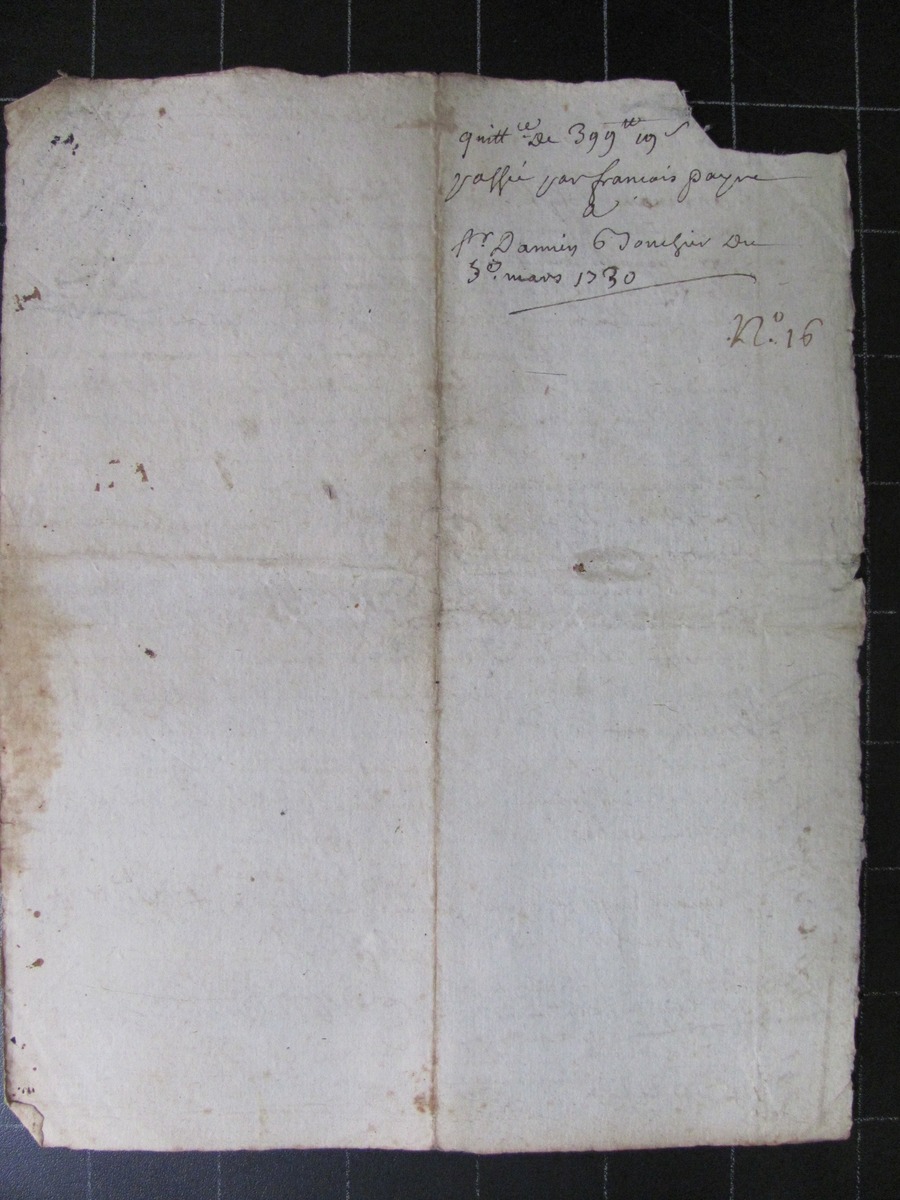 quitt.ce De 399tt 19s
passée par francois payre
a
sr Damien Bouchier Du
3e. mars 1730
N.o 16